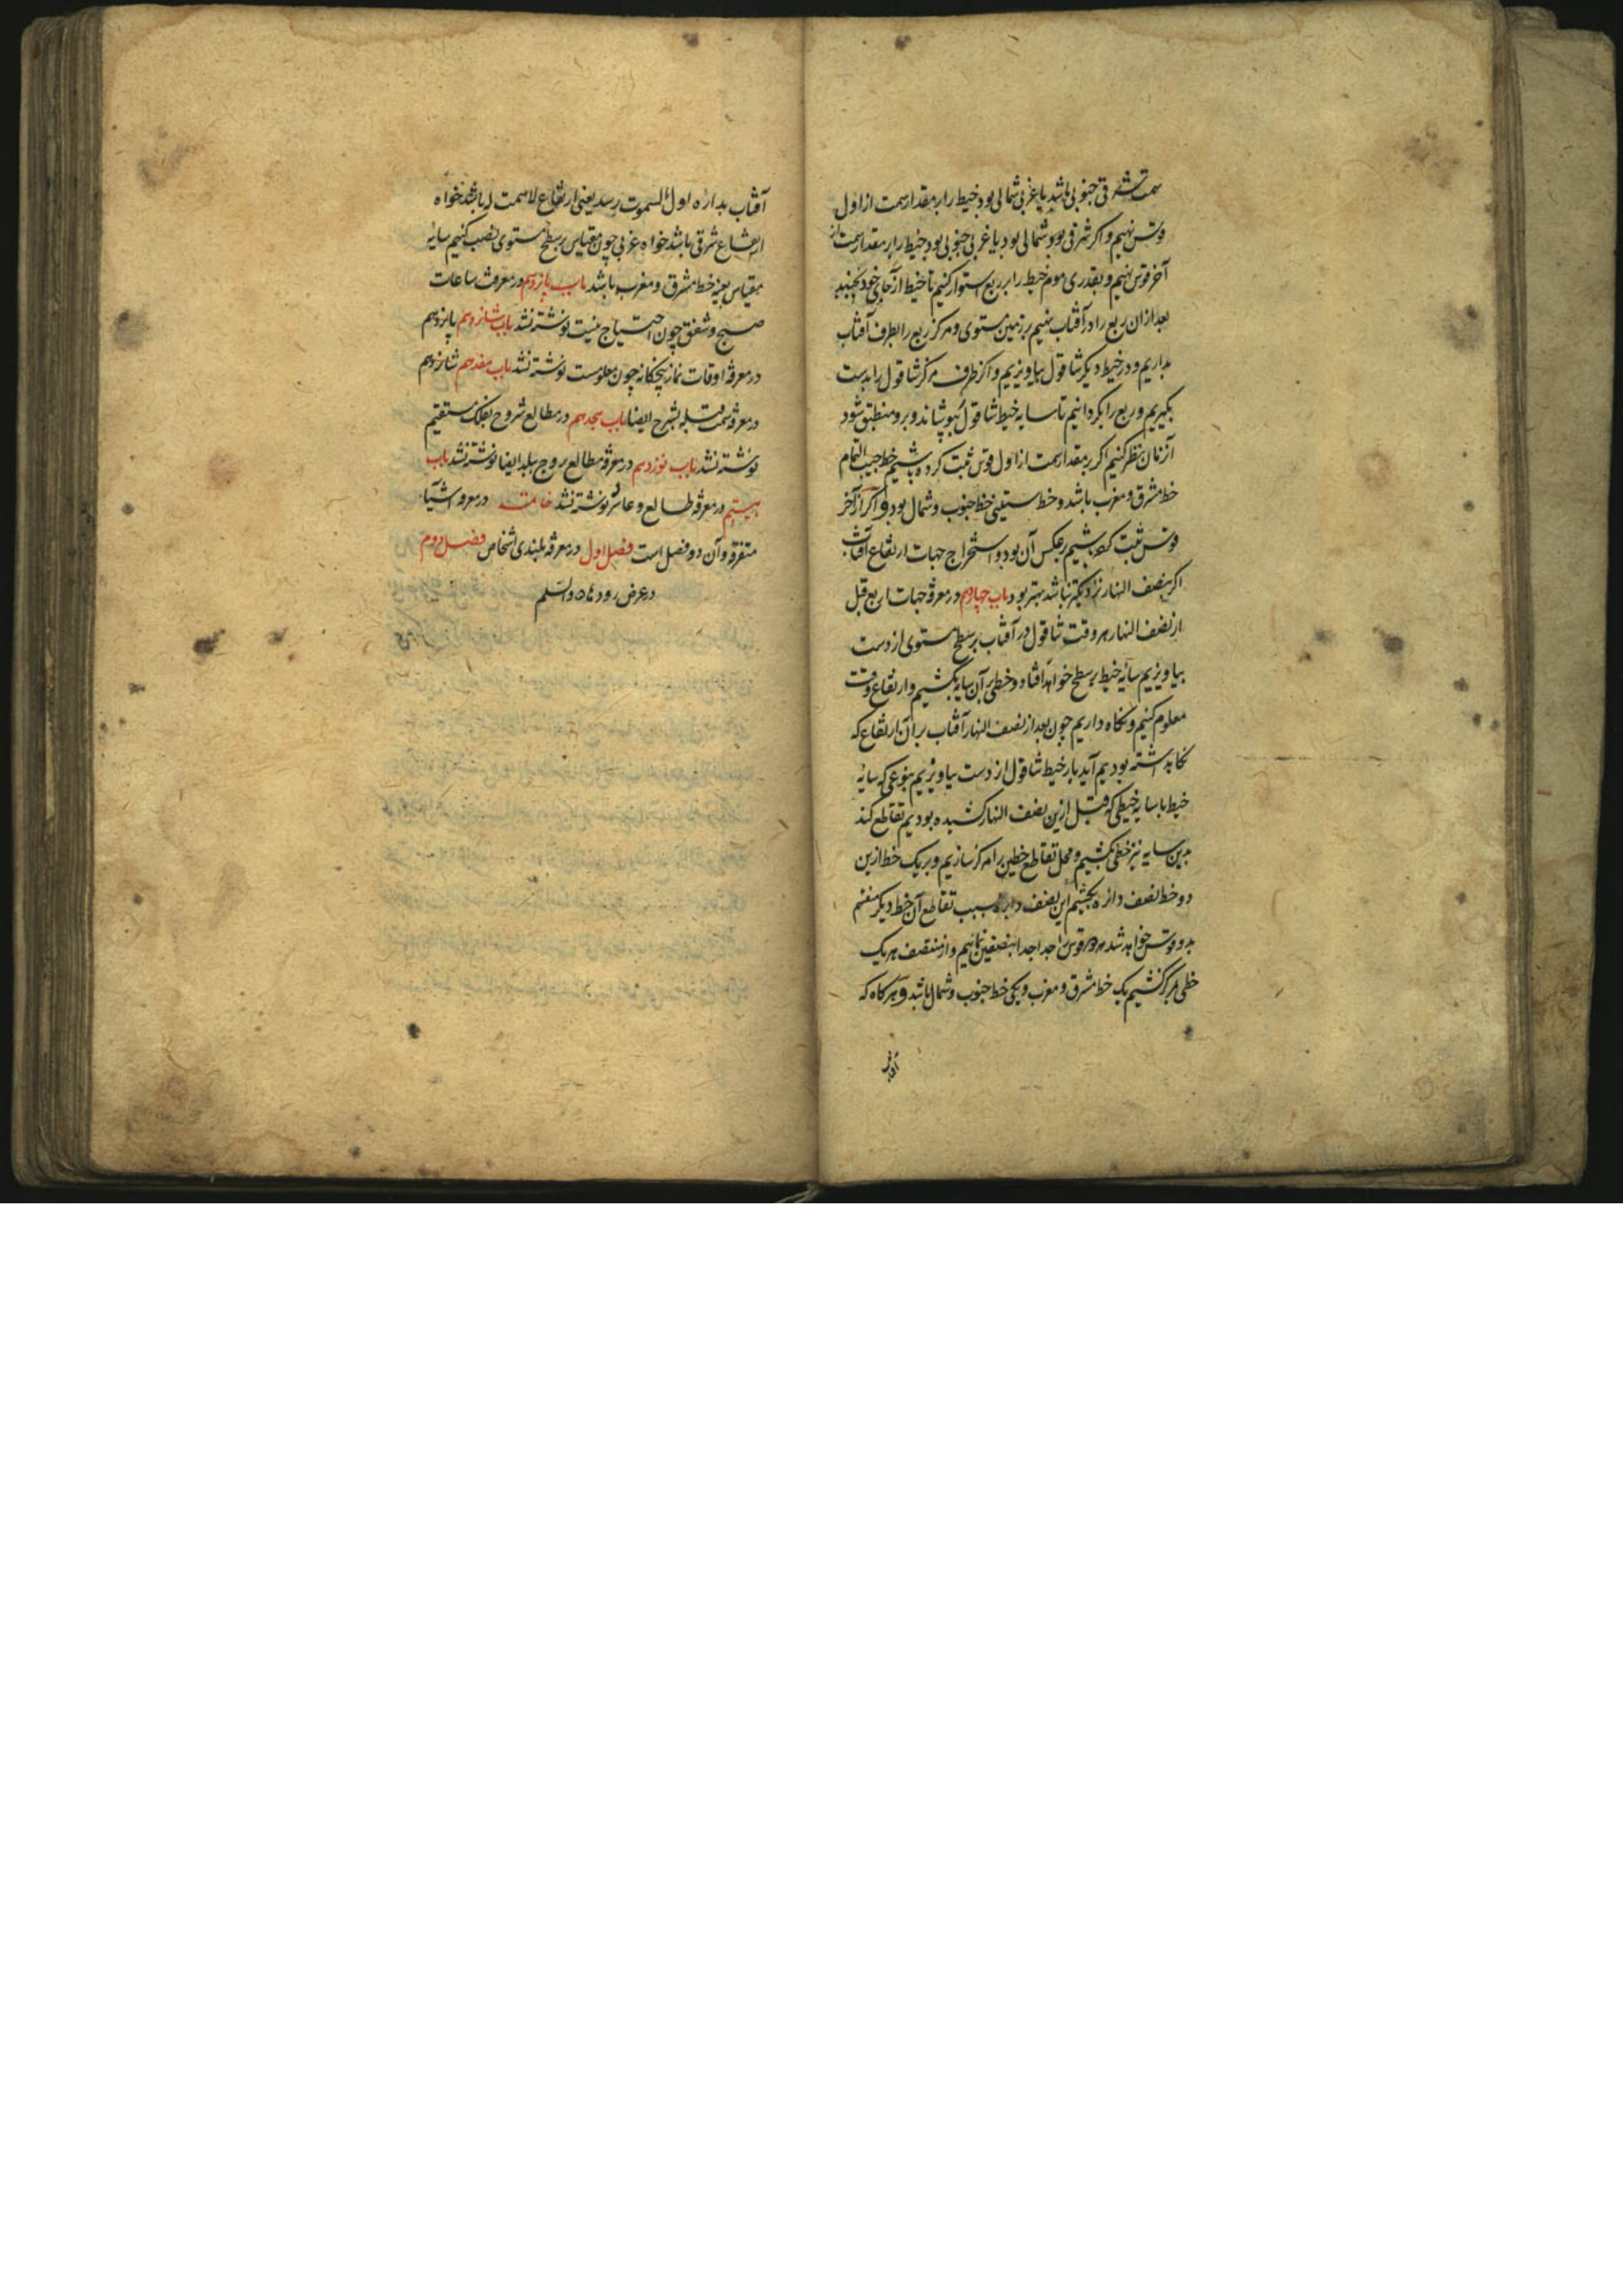 سمت شرقی جنوبی باشد یا غربی شمالی بود خیط را بر مقدار سمت از اول
قوس نهیم و اگر شرقی بود و شمالی بود یا غربی جنوبی بود خیط را بر مقدار سمت از
آخر قوس نهیم و بقدری موم خیط را بر ربع استوار کنیم تا خیط از جای خود نجنبد
بعد از ان ربع را در آفتاب نهیم بر زمین مستوی و مرکز ربع را بطرف آفتاب
بداریم و در خیط دیگر شاقول بیاویزیم و از طرف مرکز شاقول را بدست
بگیریم و ربع را بگردانیم تا سایه خیط شاقول بپوشاند و برو منطبق شود
آنزمان نظر کنیم اگر بمقدار سمت از اول قوس ثبت کرده باشیم خط جیب التمام
خط مشرق و مغرب باشد و خط ستینی خط جنوب و شمال بود و اگر از آخر
قوس ثبت کرده باشیم بر عکس آن بود و استخراج جهات ارتفاع آفتاب
اگر بنصف النهار نزدیکتر نباشد بهتر بود باب چهاردهم در معرفة جهات اربع قبل
از نصف النهار هر وقت شاقول در آفتاب بر سطح مستوی از دست
بیاویزیم سایه خیط بر سطح خواهد افتاد و خطی بر آن سایه بکشیم و ارتفاع وقت
معلوم کنیم و نگاه داریم چون بعد از نصف النهار آفتاب بر آن ارتفاع که
نگاه داشته بودیم آید باز خیط شاقول از دست بیاویزیم بنوعی که سایهٔ
خیط با سایه خیطی که قبل ازین نصف النهار کشیده بودیم تقاطع کند
بدین سایه نیز خطی بکشیم و محل تقاطع خطین را مرکز سازیم و بر یک خط ازین
دو خط نصف دائره بکشیم این نصف دایره بسبب تقاطع آن خط دیگر منقسم
بدو قوس خواهد شد هر دو قوس را جدا جدا بنصفین نمائیم و از منتصف هر یک
خطی بمرکز کشیم یک خط مشرق و مغرب و یکی خط جنوب و شمال باشد و هر گاه که
آفتاب
آفتاب بدائره اول السموت رسد یعنی ارتفاع لاسمت له باشد خواه
ارتفاع شرقی باشد خواه غربی چون مقیاس بر سطح مستوی نصب کنیم سایهٔ
مقیاس بعینه خط مشرق و مغرب باشد باب پانزدهم در معرفت ساعات
صبح و شفق چون احتیاج نیست نوشته نشد باب شانزدهم پانزدهم
در معرفة اوقات نماز پنجگانه چون معلومست نوشته نشد باب هفدهم شانزدهم
در معرفة سمت قبله بشرح ایضا باب هجدهم در مطالع بروج بفلک مستقیم
نوشته نشد باب نوزدهم در معرفة مطالع بروج ببلد ایضا نوشته نشد باب
بیستم در معرفة طالع و عاشر نوشته نشد خاتمه در معرفة اشیاء
متفرقه و آن دو فصل است فصل اول در معرفة بلندی اشخاص فصل دوم
در عرض رودها والسلم